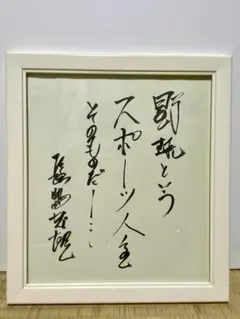 野球という
スポーツ人生
そのものだ！
長嶋茂雄